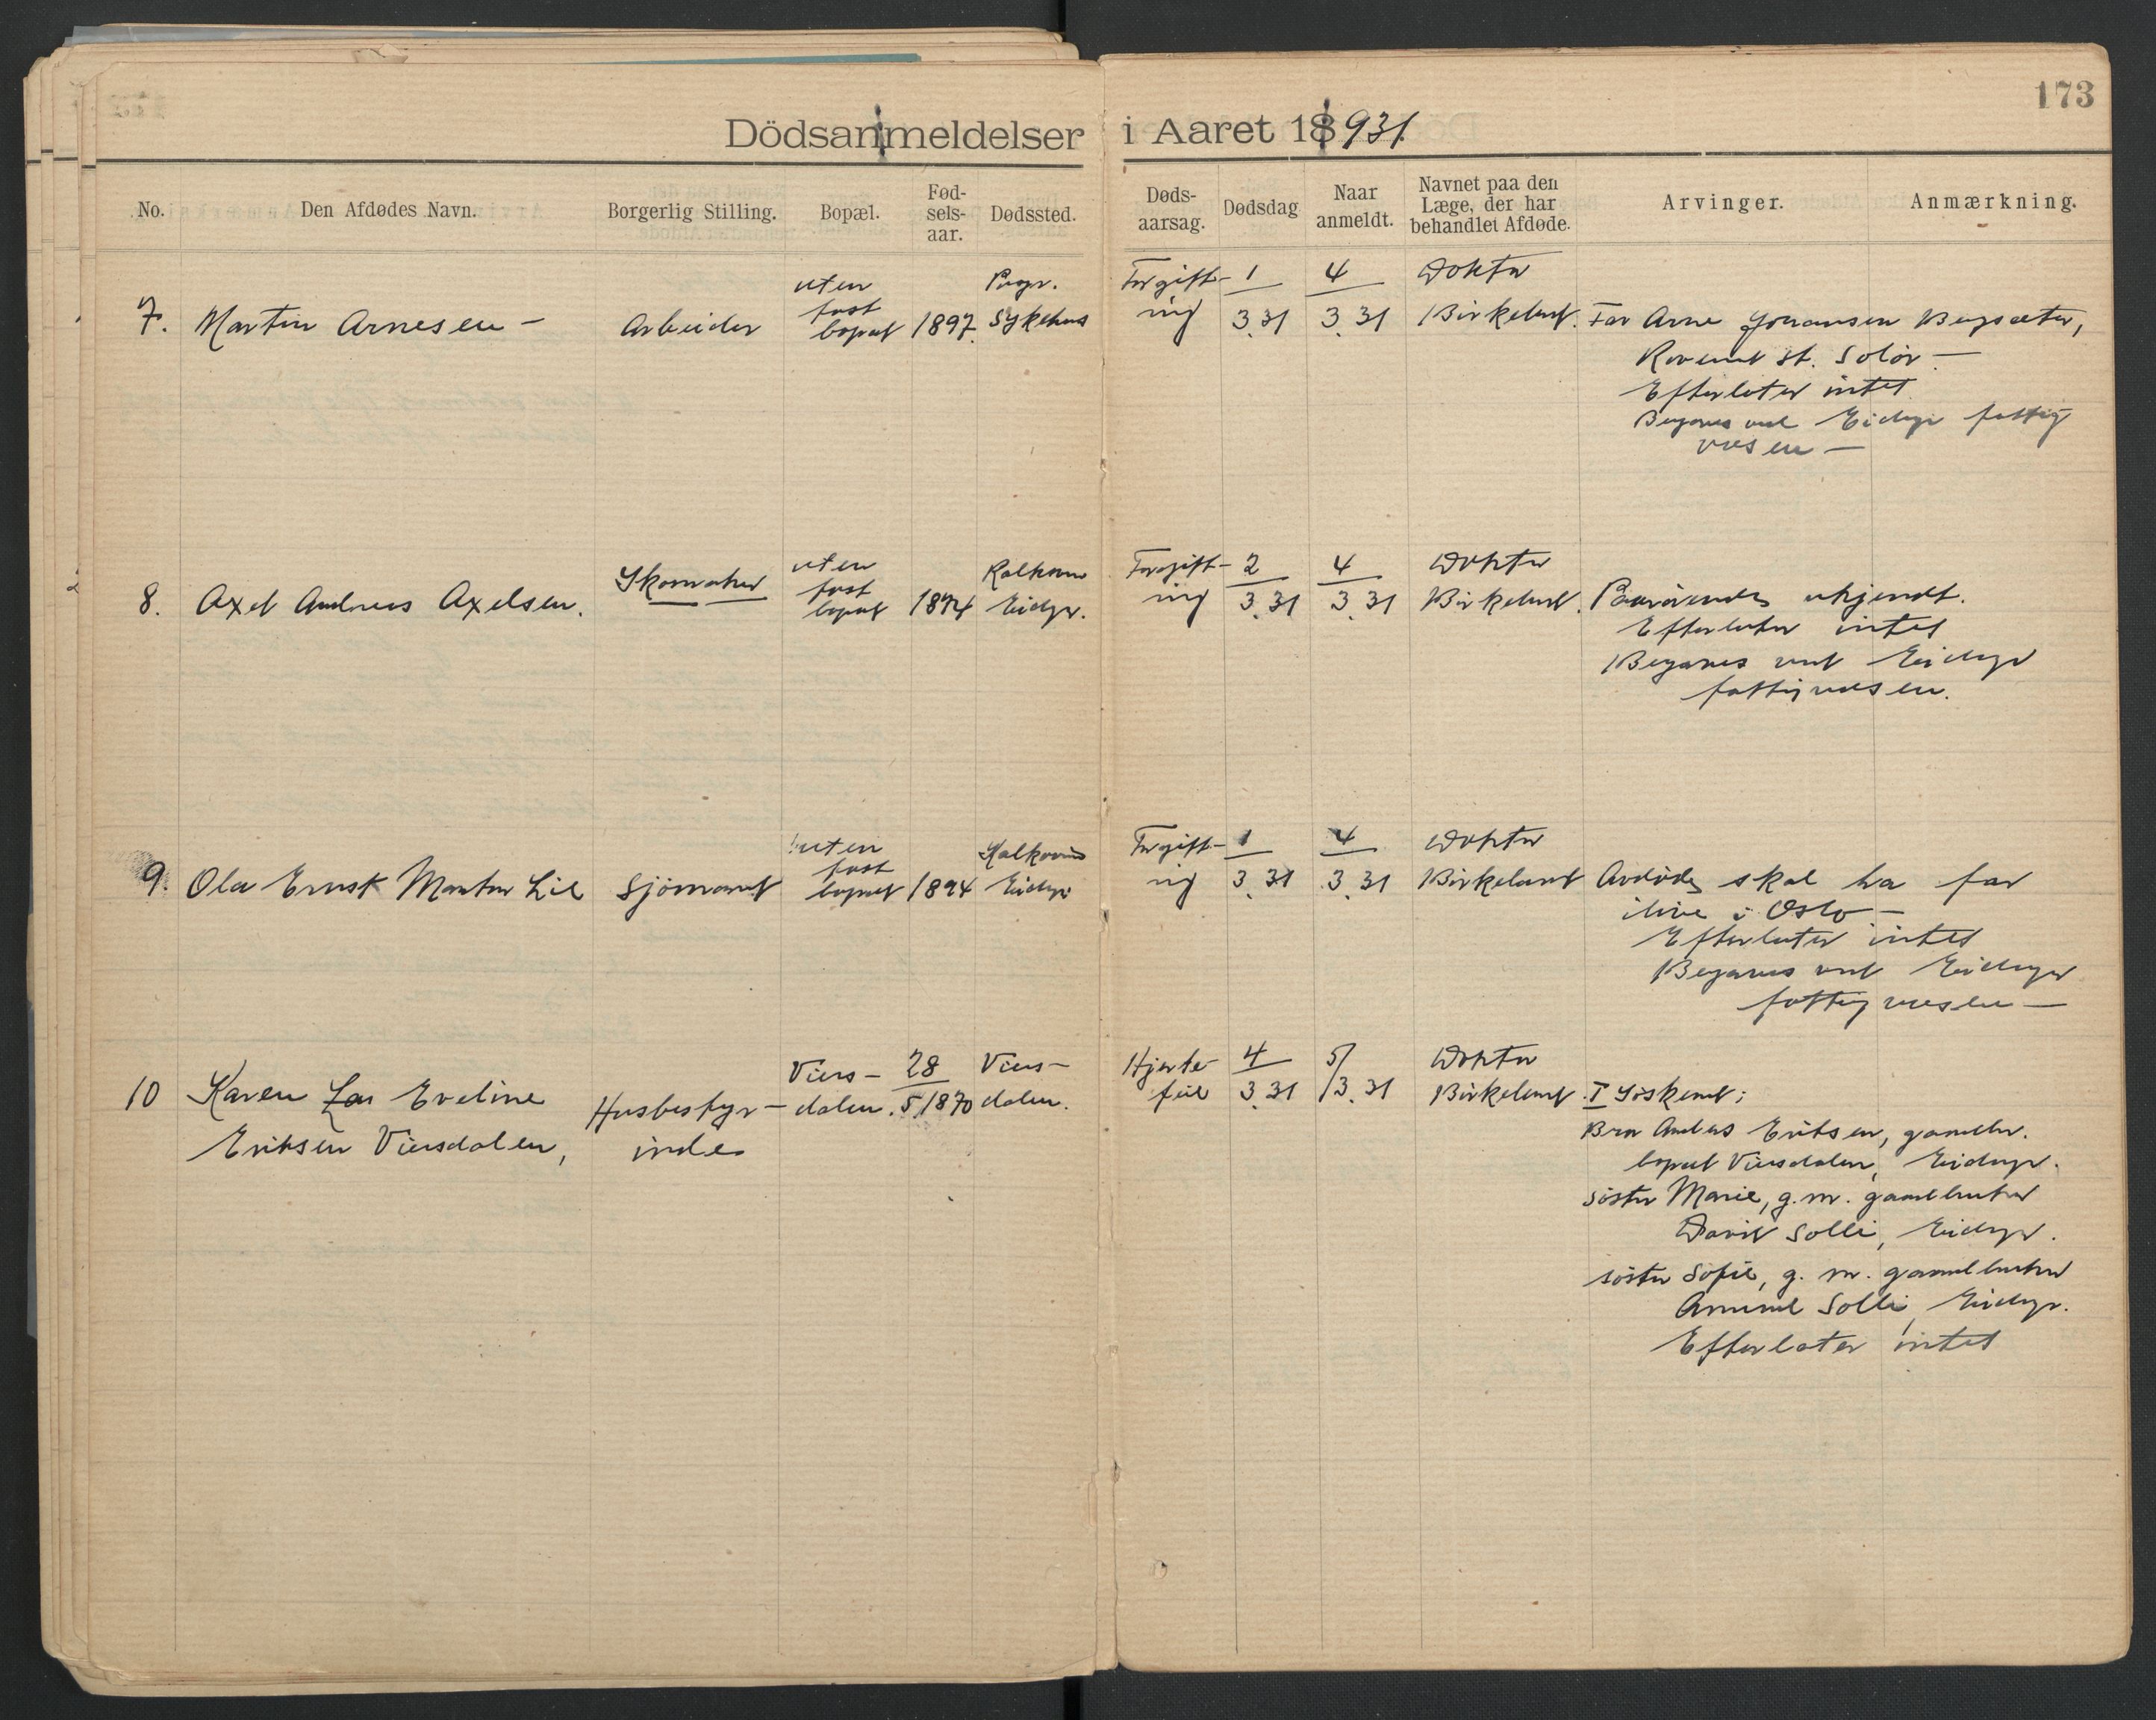 173
Dödsanmeldelser i Aaret 18931.
No. Den Afdødes Navn. Borgerlig Stilling. Bopæl. Fød-
sels-
aar. Dødssted. Døds-
aarsag. Dødsdag Naar
anmeldt. Navnet paa den
Læge, der har
behandlet Afdøde. Arvinger. Anmærkning.
7. Martin Arnesen – Arbeider
uten
fast
bopæl 1897.
Sykehus
Forgift-
ning
1
3.31
4
3.31
Doktor
Birkeland.
Far Arne Johansen
st. Solør –
Efterlater intet
fattig
væsen –
8. Axel Andreas Axelsen.
Skomaker
uten
fast
bopæl 1874
Kalkovn
Eidgr.
Forgift-
ning
2
3.31
4
3.31
Doktor
Birkeland.
Paarørendes ukjendt.
Efterlater intet
Begraves ved Eidanger
fattigvæsen.
9. Ola Ernst Lie Sjömand
uten
fast
bopæl 1894
Kalkovn
Eidgr.
Forgift-
ning
1
3.31
4
3.31
Doktor
Birkeland
Avdøde skal ha far
ilive i Oslo –
Efterlater intet
Begraves ved Eidanger
fattigvæsen –
10 Karen Eveline
Eriksen Viersdalen,
Husbestyr-
inde
Viers-
dalen.
28
5 1870
Viers-
dalen.
Hjerte-
feil
4
3.31
5/
3.31
Doktor
Birkeland
I Søskend:
Bror Anders Eriksen, gaardbr.
bopæl Viersdalen, Eidangr.
søster Marie, g. m. gaardbruker
David Solli, Eidangr.
søster Sofie, g. m. gaardbruker
Amund Solli, Eidangr.
Efterlater intet